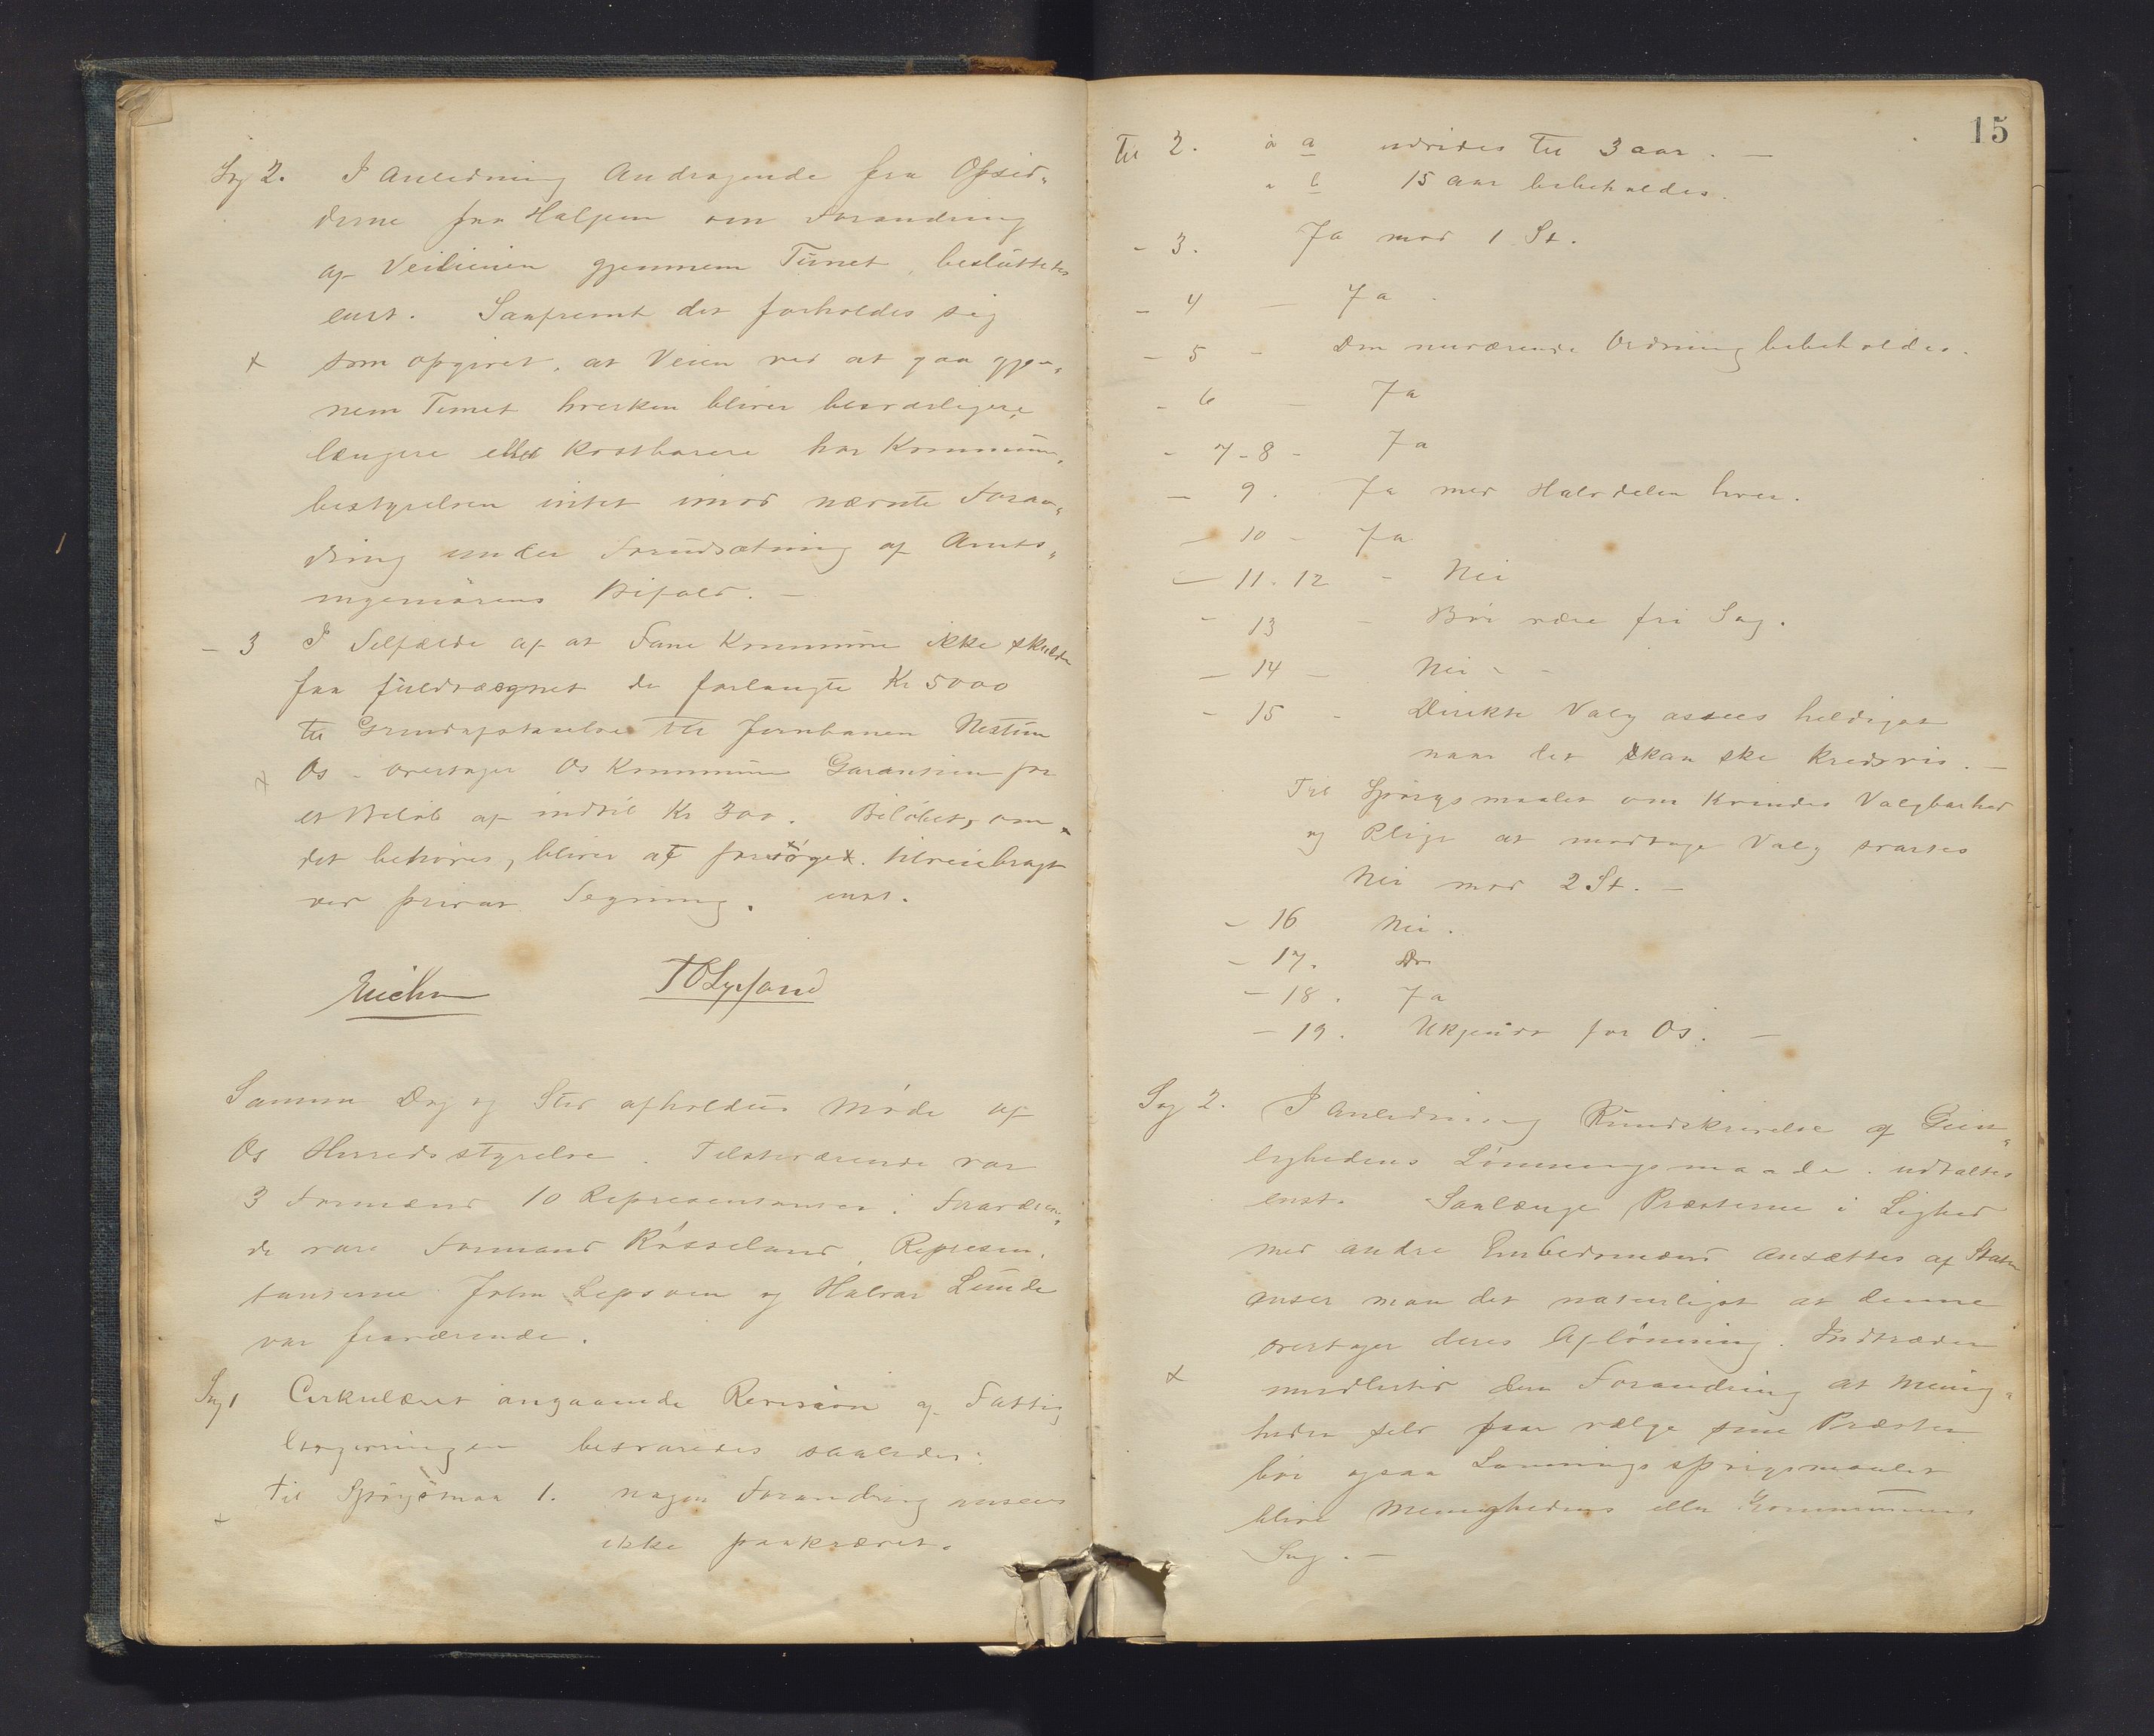 Sag 2. I Anledning Andragende fra Opsid-
derne paa Halhjem om Forandring
af Veilinien gjennem Tunet, besluttedes
enst. Saafremt det forholder sig
x som opgivet, at Veien ved at gaa gjen-
nem Tunet hverken bliver besværligere,
længere eller kostbarere har Kommune-
bestyrelsen intet imod nævnte Foran-
dring under Forudsætning af Amts-
ingeniørens Bifald. -
- 3 I Tilfælde af at Fane Kommune ikke skulde
faa fuldtegnet de forlangte Kr 5000
til Grundafstaaelse til Jernbanen Nestun
x Os - overtager Os Kommune Garantien for
et Beløb af indtil Kr 300. Beløbet, om
det behøves, bliver at forsøgt tilveiebragt
ved privat Tegning. enst.
T O Lysfand
Samme Dag og Sted afholdtes Møde af
Os Herredsstyrelse. Tilstedeværende var
3 Formænd 10 Repræsentanter. Fraværen-
de vare Formand Røsseland, Repræsen-
tanterne John Lepsøen og Halvar Lunde
var fraværende.
Sag 1 Cirkulæret angaaende Revision af Fattig
lovgivningen besvaredes saaledes:
x til Spørgsmaal 1. nogen Forandring ansees
ikke paakrævet.
15
Til 2. a a udvides til 3 aar. -
" b 15 aar bibeholdes.
- 3. Ja mod 1 St.
- 4 - Ja.
- 5 - Den nuværende Ordning bibeholdes.
- 6 - Ja
- 7-8 - Ja
- 9. Ja med Halvdelen hver.
- 10 - Ja
- 11. 12 - Nei
- 13 - Bør være fri Sag.
- 14 - Nei - -
- 15 - Direkte Valg ansees heldigst
naar det kan ske kredsvis. -
Til Spørgsmaalet om Kvinders Valgbarhed
og Pligt at modtage Valg svartes
Nei mod 2 St. -
- 16 Nei.
- 17. Do
- 18. Ja
- 19. Ukjendt for Os. -
Sag 2. I Anledning Rundskrivelse af Geist-
lighedens Lønningsmaade. udtaltes
enst. Saalænge Præsterne i Lighed
med andre Embedsmænd ansættes af Staten
anser man det naturligst at denne
overtager deres Aflønning. Indtræder
x imidlertid den Forandring at Menig-
heden selv faar vælge sine Præster
bør ogsaa Lønningsspørgsmaalet
blive Menighedens eller Kommunens
Sag. -